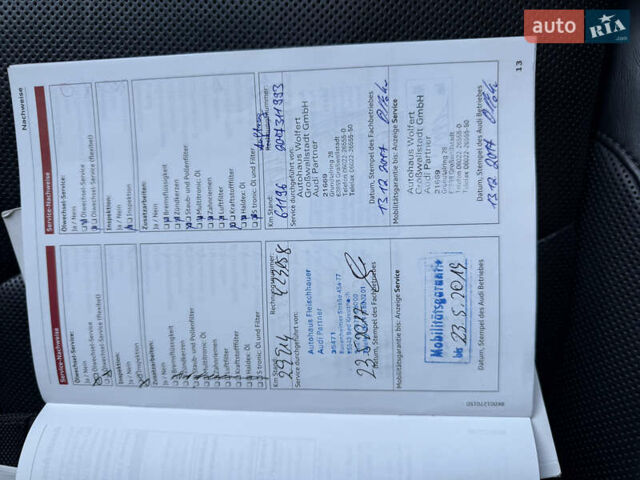 auto RIA
.com
Nachweise
Service-Nachweise
Ölwechsel-Service:
Ja / Nein
Ölwechsel-Service
Ölwechsel-Service (flexibel)
Inspektion:
Ja / Nein
Inspektion
Zusatzarbeiten:
Ja / Nein
Bremsflüssigkeit
Zündkerzen
Staub- und Pollenfilter
Multitronic: Öl
Zahnriemen
Luftfilter
Kraftstofffilter
Haldex: Öl
S tronic: Öl und Filter
Km Stand:
Rechnungsnummer:
29214
423258
Service durchgeführt von:
Autohaus Fleischhauer
Audi Partner
35471
Datum, Stempel des Fachbetriebes
Mobilitätsgarantie bis: Anzeige Service
Mobilitätsgarantie
bis 23.5.2019
Datum, Stempel des Audi Betriebes
Service-Nachweise
Ölwechsel-Service:
Ja / Nein
Ölwechsel-Service
Ölwechsel-Service (flexibel)
Inspektion:
Ja / Nein
Inspektion
Zusatzarbeiten:
Ja / Nein
Bremsflüssigkeit
Zündkerzen
Staub- und Pollenfilter
Multitronic: Öl
Zahnriemen
Luftfilter
Kraftstofffilter
Haldex: Öl
S tronic: Öl und Filter
Km Stand:
61196
Service durchgeführt von:
Autohaus Wolfert
Großwallstadt GmbH
Audi Partner
21609
63868 Großwallstadt
Telefon 06022-26558-0
Telefax 06022-26558-50
Datum, Stempel des Fachbetriebes
13.12.2017
Mobilitätsgarantie bis: Anzeige Service
Autohaus Wolfert
Großwallstadt GmbH
Audi Partner
21609
63868 Großwallstadt
Telefon 06022-26558-0
Telefax 06022-26558-50
13.12.2017
Datum, Stempel des Audi Betriebes
13